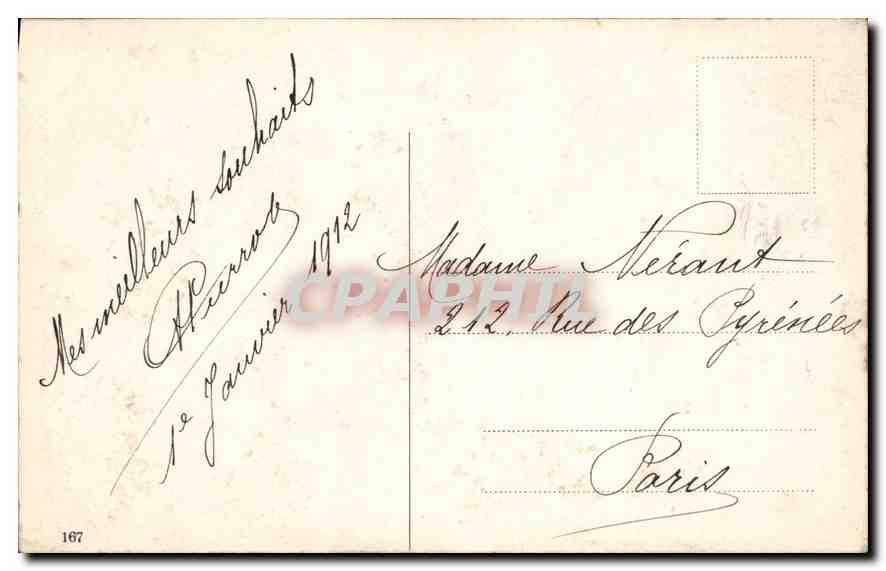 Mes meilleurs souhaits
Pierrot
1e Janvier 1912
Madame Nérant
212, Rue des Pyrénées
Paris
167
CPAPHIL